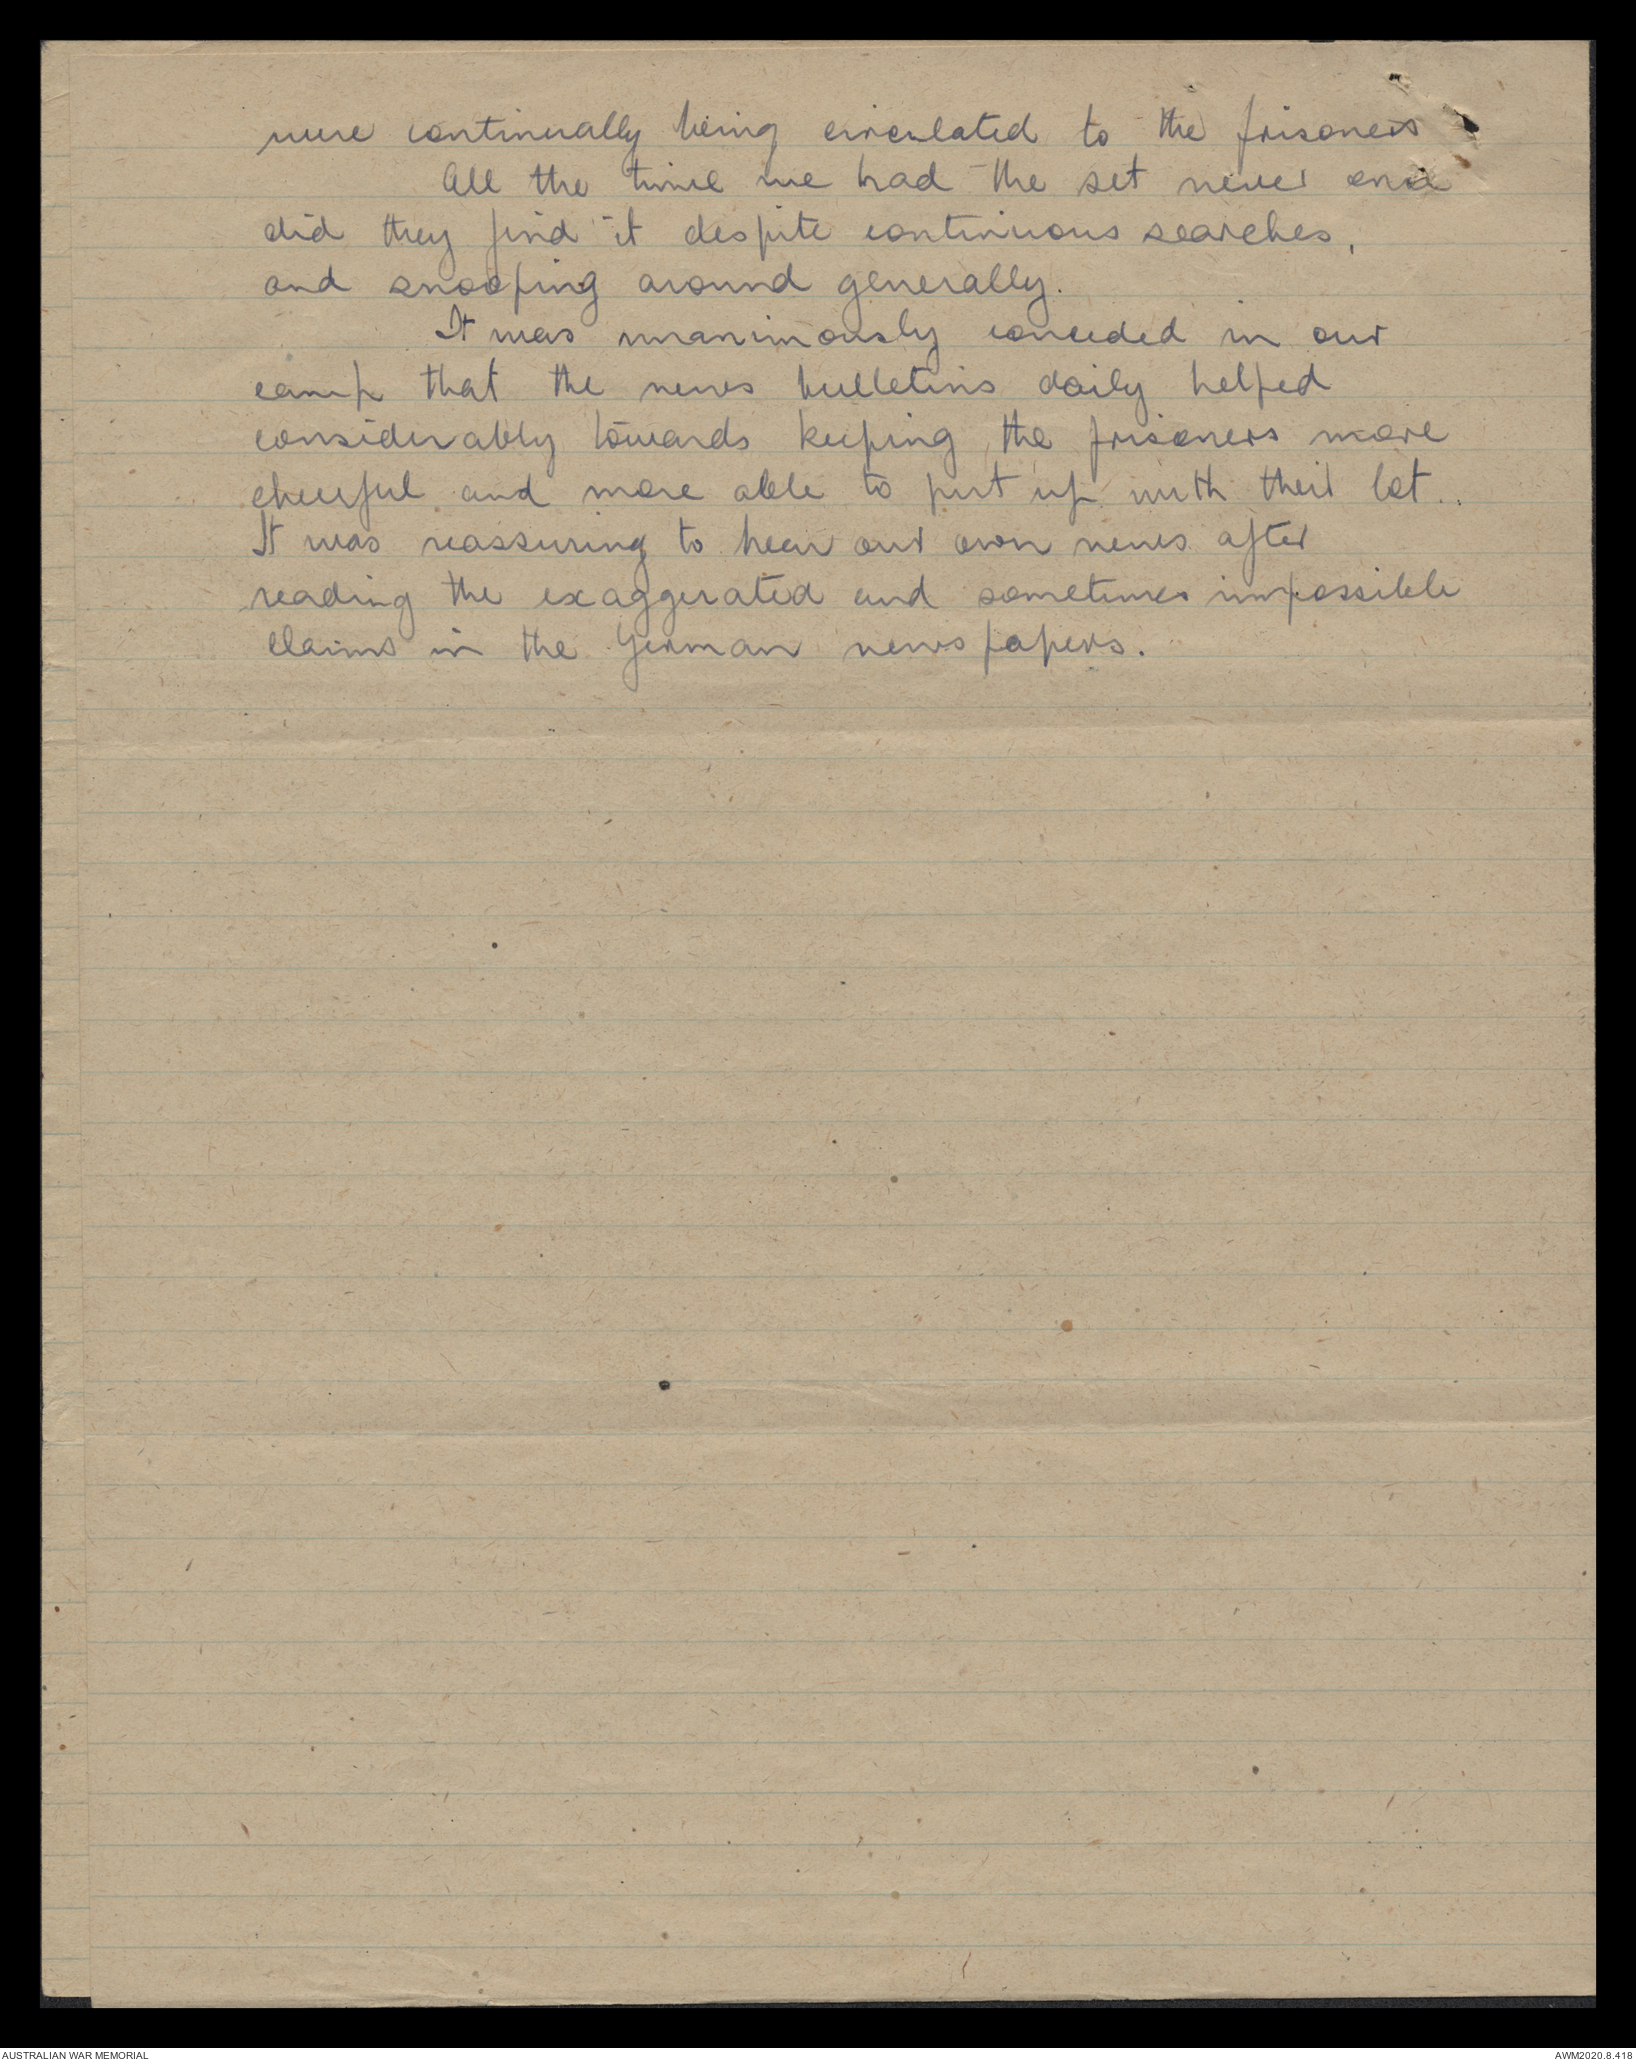 were continually being circulated to the prisoners
All the time we had the set never once
did they find it despite continuous searches,
and snooping around generally.
It was unanimously conceded in our
camp that the news bulletins daily helped
considerably towards keeping the prisoners more
cheerful and more able to put up with their lot.
It was reassuring to hear our own news after
reading the exaggerated and sometimes impossible
claims in the German newspapers.
AUSTRALIAN WAR MEMORIAL
AWM2020.8.418